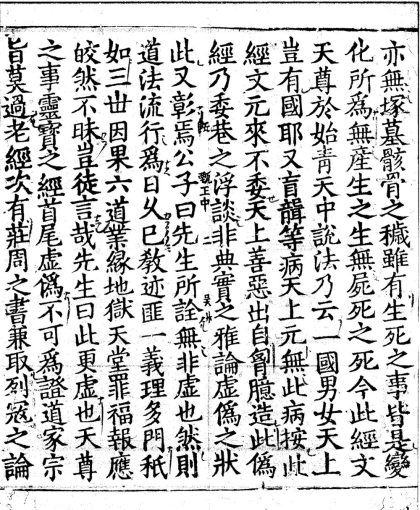 亦無塚墓骸骨之穢雖有生死之事皆是變
化所為無產生之生無屍死之死今此經文
天尊於始青天中說法乃云一國男女天上
豈有國耶又盲聾等病天上元無此病按此
經文元來不委天上善惡出自胷臆造此偽
經乃委巷之浮談非典實之雅論虛偽之狀
此又彰焉公子曰先生所詮無非虛也然則
道法流行為日久巳教迹匪一義理多門秖
如三世因果六道業緣地獄天堂罪福報應
皎然不昧豈徒言哉先生曰此更虛也天尊
之事靈寶之經首尾虛偽不可為證道家宗
旨莫過老經次有莊周之書兼取列寇之論